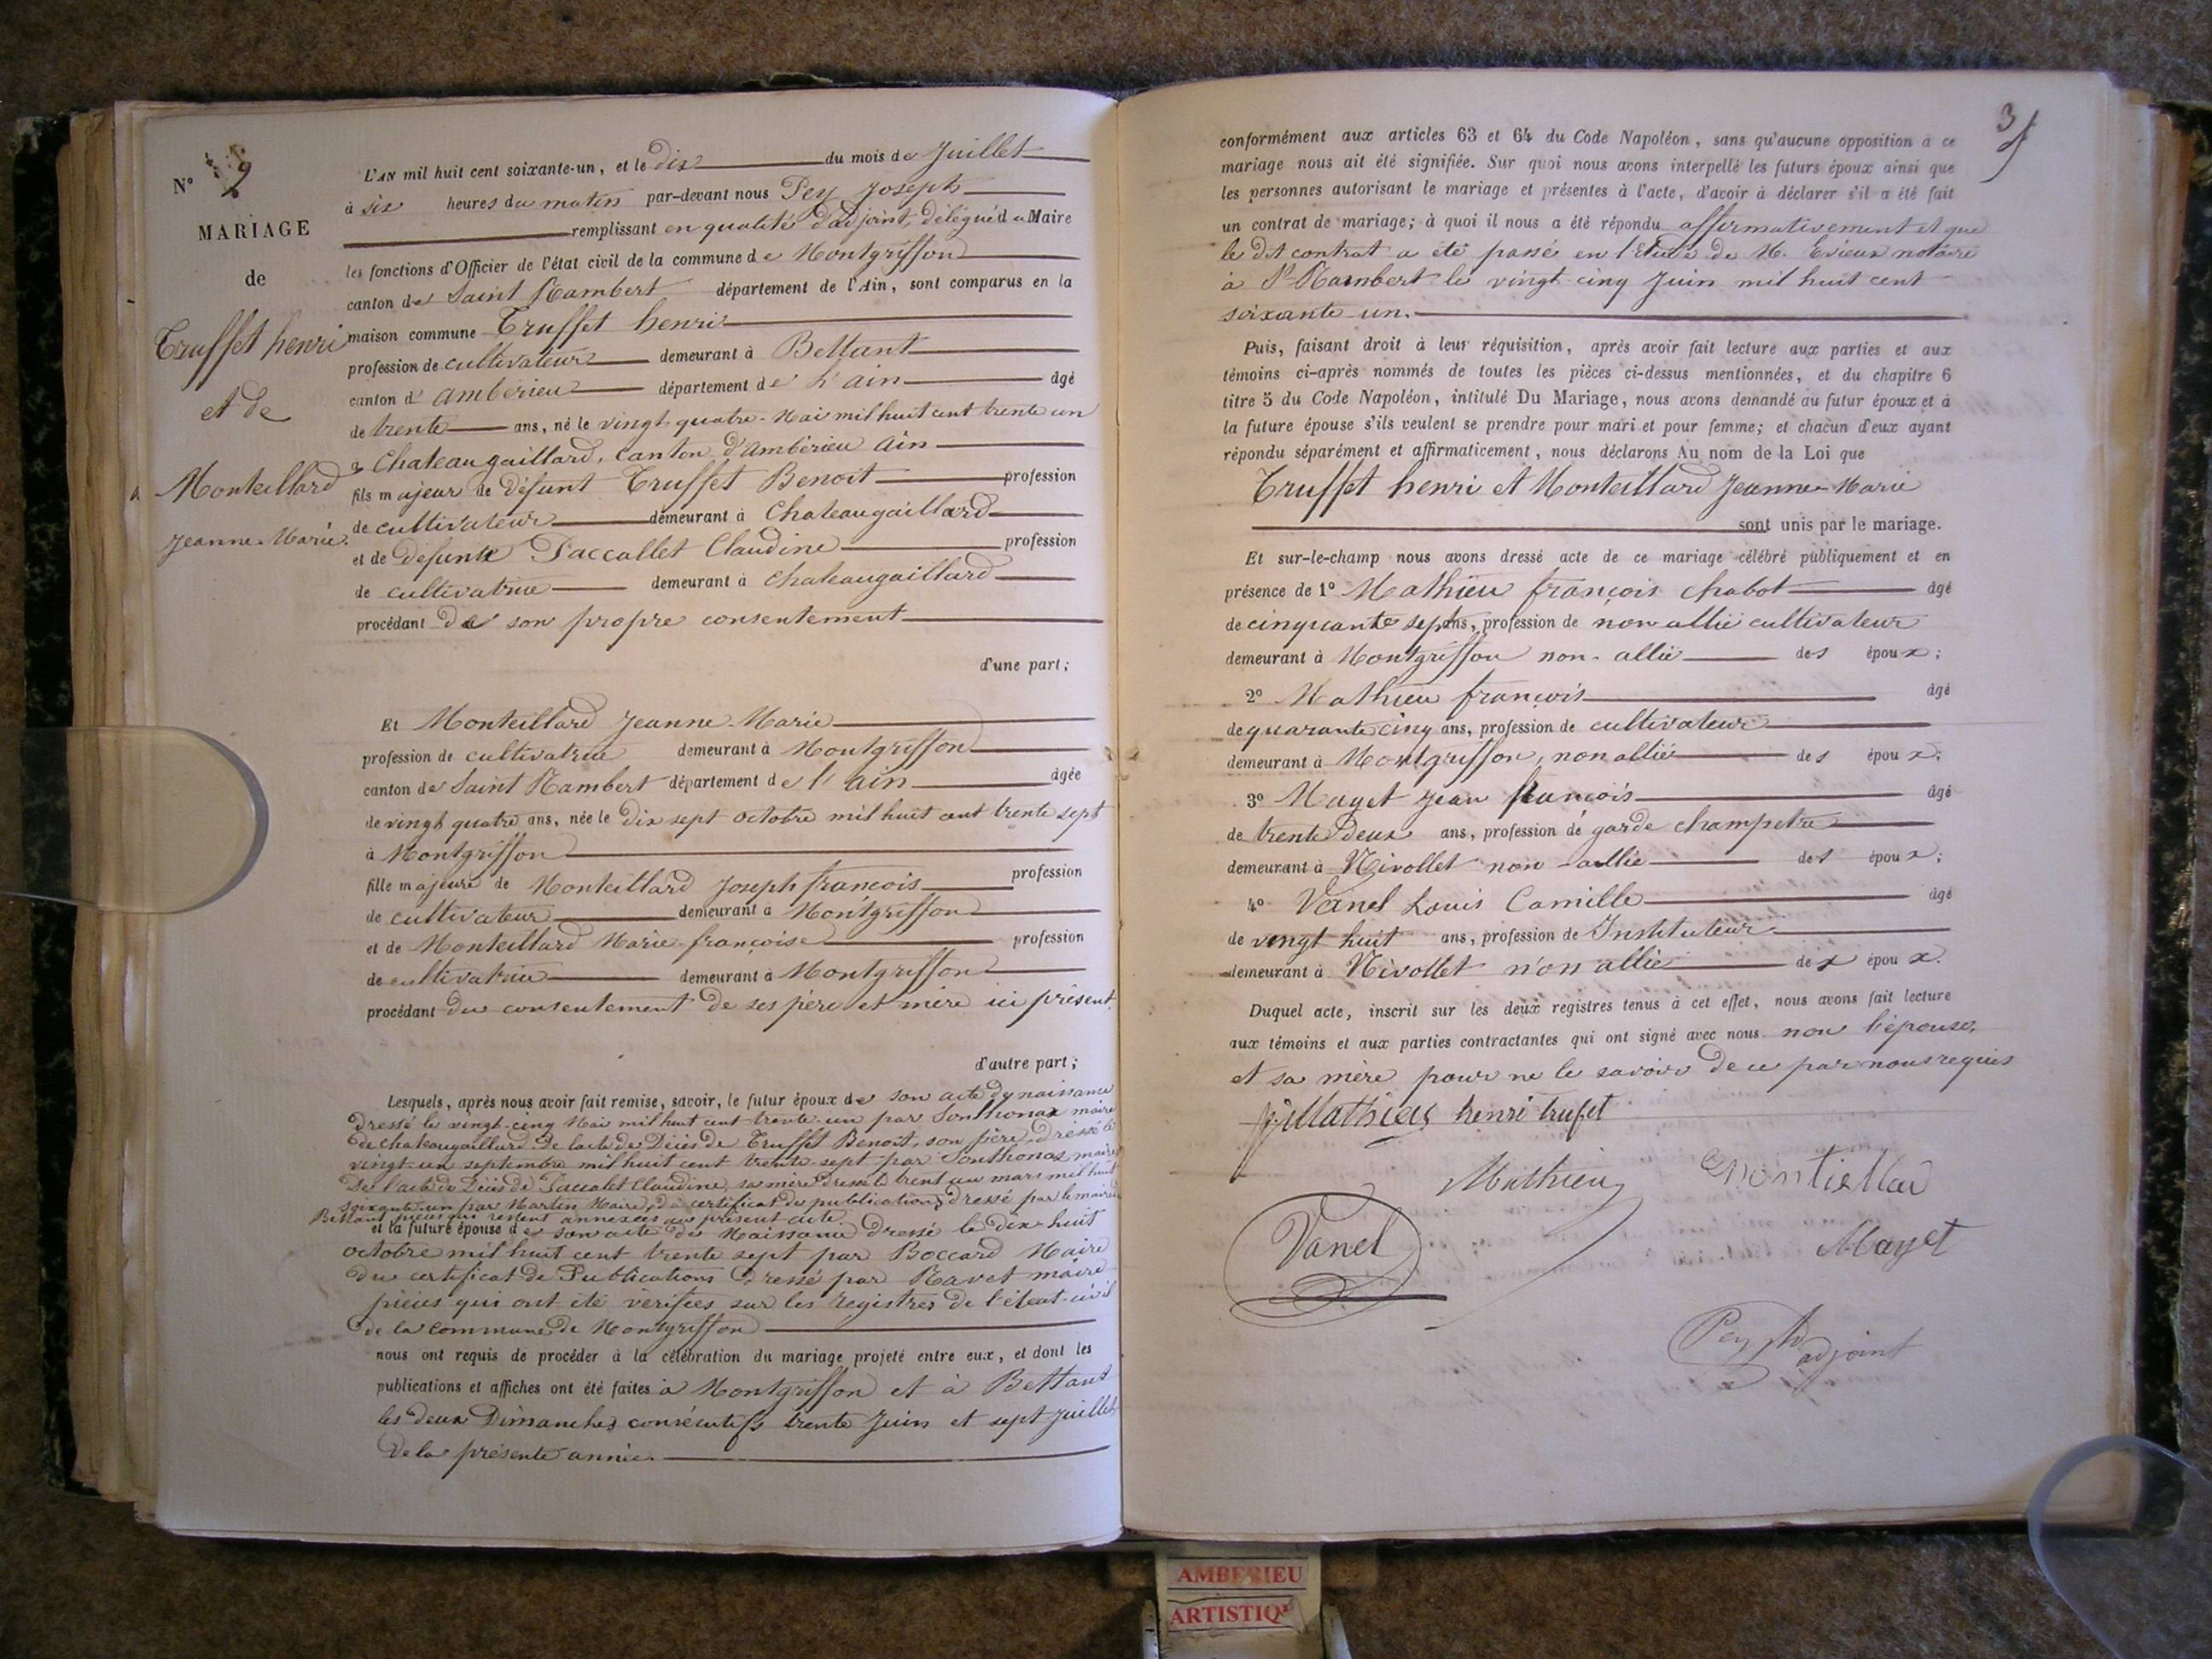 N° 2
MARIAGE
de
Truffet henri
et de
Monteillard
Jeanne-Marie.
L'AN mil huit cent soixante-un, et le dix du mois de Juillet
à six heures du matin par-devant nous Pey Joseph
remplissant en qualité d'adjoint, délégué du Maire
les fonctions d'Officier de l'état civil de la commune de Montgriffon
canton de Saint Rambert département de l'Ain, sont comparus en la
maison commune Truffet henri
profession de cultivateur demeurant à Bettant
canton d'ambérieu département de l'ain âgé
de trente ans, né le vingt-quatre Mai mil huit cent trente un
à Chateaugaillard, Canton d'Ambérieu Ain
fils majeur de défunt Truffet Benoit profession
de cultivateur demeurant à Chateaugaillard
et de défunte Paccallet Claudine profession
de cultivatrice demeurant à chateaugaillard
procédant de son propre consentement
d'une part;
Et Monteillard Jeanne-Marie
profession de cultivatrice demeurant à Montgriffon
canton de Saint Rambert département de l'ain âgée
de vingt quatre ans, née le dix sept octobre mil huit cent trente sept
à Montgriffon
fille majeure de Monteillard Joseph françois profession
de cultivateur demeurant à Montgriffon
et de Monteillard Marie-françoise profession
de cultivatrice demeurant à Montgriffon
procédant du consentement de ses père et mère ici présent,
d'autre part;
Lesquels, après nous avoir fait remise, savoir, le futur époux de son acte de naissance
Dressé le vingt-cinq Mai mil huit cent trente-un par Sonthonax maire
de chateaugaillard De l'acte de Décès de Truffet Benoit, son père, dressé le
vingt-un septembre mil huit cent trente-sept par Sonthonax maire
De l'acte de Décès de Paccalet Claudine, sa mère dressé le trent un mars mil huit
soixante-un par Martin Maire, du certificat de publications dressé par le maire de
Bettant pièces qui restent annexées au présent acte.
et la future épouse de son acte de Naissance dressé le dix-huit
octobre mil huit cent trente sept par Boccard Maire
du certificat de Publications dressé par Ravet maire
pièces qui ont été vérifiées sur les registres de l'état-civil
de la commune de Montgriffon
nous ont requis de procéder à la célébration du mariage projeté entre eux, et dont les
publications et affiches ont été faites à Montgriffon et à Bettant
les deux Dimanches consécutifs trente Juin et sept Juillet
de la présente année.
3
conformément aux articles 63 et 64 du Code Napoléon, sans qu'aucune opposition à ce
mariage nous ait été signifiée. Sur quoi nous avons interpellé les futurs époux ainsi que
les personnes autorisant le mariage et présentes à l'acte, d'avoir à déclarer s'il a été fait
un contrat de mariage; à quoi il nous a été répondu affirmativement et que
le dit contrat a été passé en l'Etude de M. Evieux notaire
à St Rambert le vingt-cinq Juin mil huit cent
soixante-un.
Puis, faisant droit à leur réquisition, après avoir fait lecture aux parties et aux
témoins ci-après nommés de toutes les pièces ci-dessus mentionnées, et du chapitre 6
titre 5 du Code Napoléon, intitulé Du Mariage, nous avons demandé au futur époux et à
la future épouse s'ils veulent se prendre pour mari et pour femme; et chacun d'eux ayant
répondu séparément et affirmativement, nous déclarons Au nom de la Loi que
Truffet henri et Monteillard Jeanne-Marie
sont unis par le mariage.
Et sur-le-champ nous avons dressé acte de ce mariage célébré publiquement et en
présence de 1° Mathieu françois chabot âgé
de cinquante sept ans, profession de non allié cultivateur
demeurant à Montgriffon non-allié des époux;
2° Mathieu françois âgé
de quarante cinq ans, profession de cultivateur
demeurant à Montgriffon, non allié des époux;
3° Mayet Jean françois âgé
de trente deux ans, profession de garde champetre
demeurant à Nivollet non-allié des époux;
4° Vanel Louis Camille âgé
de vingt huit ans, profession de Instituteur
demeurant à Nivollet non allié des époux.
Duquel acte, inscrit sur les deux registres tenus à cet effet, nous avons fait lecture
aux témoins et aux parties contractantes qui ont signé avec nous non l'épouse,
et sa mère pour ne le savoir de ce par nous requis
Mathieu henri trufet
Mathieu Montiellar
Vanel Mayet
Pey adjoint
AMBERIEU
ARTISTIQ